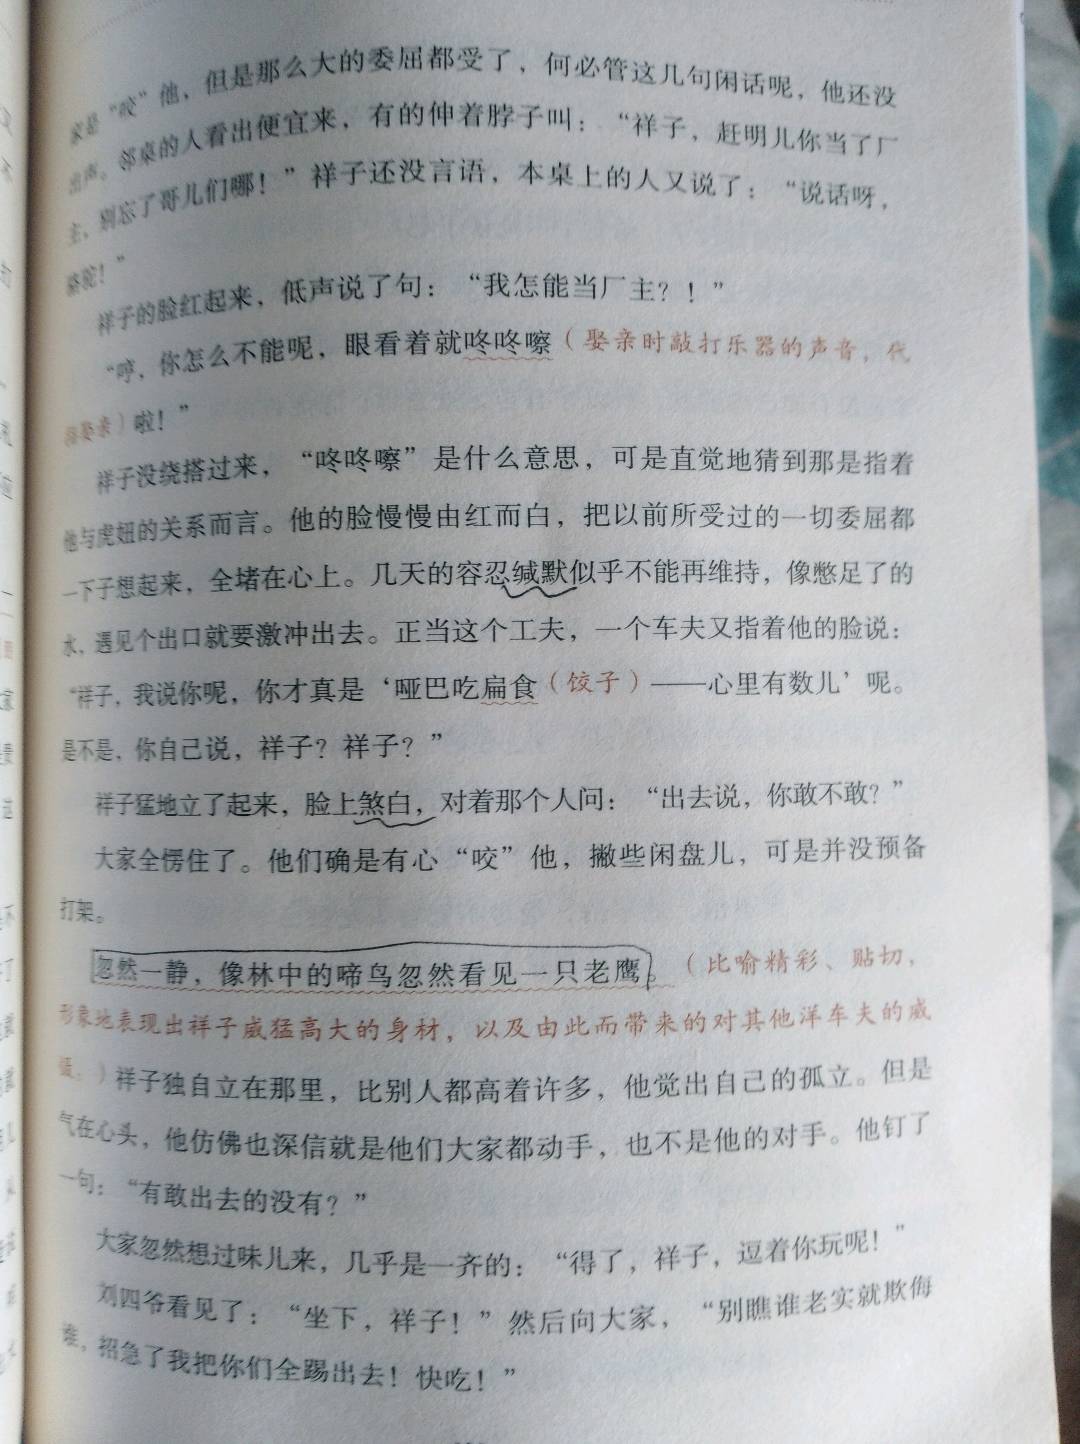 家是“咬”他，但是那么大的委屈都受了，何必管这几句闲话呢，他还没
出声。邻桌的人看出便宜来，有的伸着脖子叫：“祥子，赶明儿你当了厂
主，别忘了哥儿们哪！”祥子还没言语，本桌上的人又说了：“说话呀，
骆驼！”
祥子的脸红起来，低声说了句：“我怎能当厂主？！”
“哼，你怎么不能呢，眼看着就咚咚嚓（娶亲时敲打乐器的声音，代
指娶亲）啦！”
祥子没绕搭过来，“咚咚嚓”是什么意思，可是直觉地猜到那是指着
他与虎妞的关系而言。他的脸慢慢由红而白，把以前所受过的一切委屈都
一下子想起来，全堵在心上。几天的容忍缄默似乎不能再维持，像憋足了的
水，遇见个出口就要激冲出去。正当这个工夫，一个车夫又指着他的脸说：
“祥子，我说你呢，你才真是‘哑巴吃扁食（饺子）——心里有数儿’呢。
是不是，你自己说，祥子？祥子？”
祥子猛地立了起来，脸上煞白，对着那个人问：“出去说，你敢不敢？”
大家全愣住了。他们确是有心“咬”他，撇些闲盘儿，可是并没预备
打架。
忽然一静，像林中的啼鸟忽然看见一只老鹰。（比喻精彩、贴切，
形象地表现出祥子威猛高大的身材，以及由此而带来的对其他洋车夫的威
慑。）祥子独自立在那里，比别人都高着许多，他觉出自己的孤立。但是
气在心头，他仿佛也深信就是他们大家都动手，也不是他的对手。他钉了
一句：“有敢出去的没有？”
大家忽然想过味儿来，几乎是一齐的：“得了，祥子，逗着你玩呢！”
刘四爷看见了：“坐下，祥子！”然后向大家，“别瞧谁老实就欺侮
谁，招急了我把你们全踢出去！快吃！”